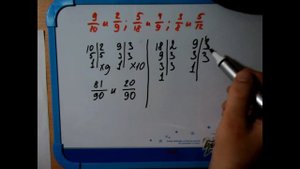 9/10 и 2/9; 5/18 и 4/9; 3/8 и 5/12
10|2 9|3 18|2 9|3
5|5 3|3 9|3 3|3
1| x9 1| x10 3|3 1|
1|
81/90 и 20/90